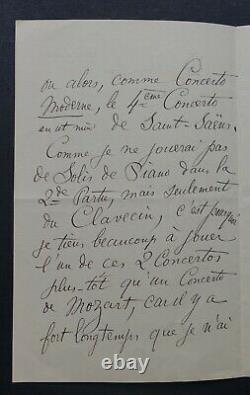 ou alors, comme Concerto
Moderne, le 4ème Concerto
en ut min. de Saint-Saëns.
Comme je ne jouerai pas
de Solis de Piano dans la
2de Partie, mais seulement
du Clavecin, c'est pourquoi
je tiens beaucoup à jouer
l'un de ces 2 Concertos
plus-tôt qu'un Concerto
de Mozart, car il y a
fort longtemps que je n'ai